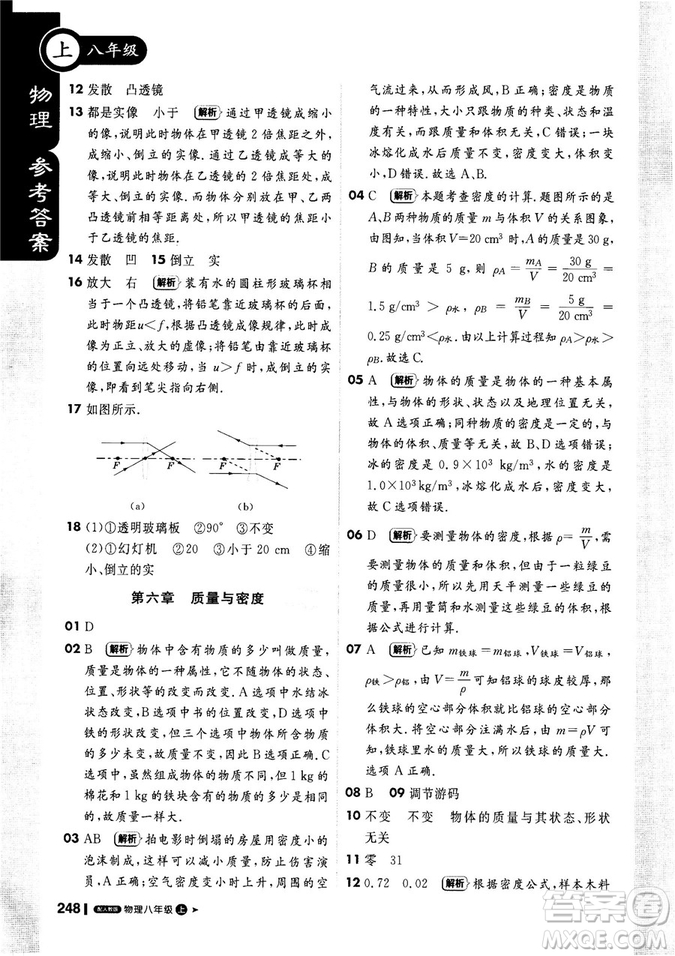 上 八年级
物理 参考答案
12 发散 凸透镜
13 都是实像 小于 解析 通过甲透镜成缩小
的像,说明此时物体在甲透镜2倍焦距之外,
成缩小、倒立的实像.通过乙透镜成等大的
像,说明此时物体在乙透镜的2倍焦距处,成
等大、倒立的实像.由于此时物体在甲、乙两
凸透镜的距离相等,所以,甲透镜的焦距小
于乙透镜的焦距.
14 发散 凹 15 倒立 实
16 放大 右 解析 装有水的圆柱形玻璃杯相
当于一个凸透镜,将铅笔靠近玻璃杯的后面,
此时物距u<f,根据凸透镜成像规律,此时
成正立、放大的虚像;将铅笔由靠近玻璃杯
的位置向远处移动,当u>f时,成倒立的实
像,即看到笔尖指向右侧.
17 如图所示.
F F F F
(a) (b)
18 (1)①透明玻璃板 ②90° ③不变
(2)①幻灯机 ②20 ③小于20 cm ④缩
小、倒立的实
第六章 质量与密度
01 D
02 B 解析 物体中含有物质的多少叫做质量,
质量是物体的一种属性,它不随物体的状态、
位置、形状的改变而改变.A选项中水结冰
状态改变,但质量不变;B选项中物质的多少
改变,质量改变;C选项中,纸张揉成团,形状
发生改变,但三个选项中物体所含物质
的多少未变,故质量不变.故选B.
2选项中,虽然组成物体的物质不同,但1 kg的
棉花和1 kg的铁块含有物质的多少相同,故
质量一样大.
03 AB 解析 拍电影时倒塌的房屋用密度小的
泡沫制成,这样可以防止伤害演
员,A正确;空气密度变小时上升,周围的冷空
248 配人教版 物理八年级 上
气流过来,从而形成风,B正确;密度是物质
的一种特性,大小只跟物质的种类、状态等
有关,而跟质量和体积无关,C错误;一块
冰熔化成水后质量不变,密度变大,体积变
小,D错误.
04 C 解析 本题考查密度的计算.题图所示的
A、B两种物质的质量m与体积V的关系图象,
由图可知,当V=20 cm³时,A的质量是30 g,
B的质量是5 g,则ρA=mA/V=30 g/20 cm³=
1.5 g/cm³>ρ水,ρB=mB/V=5 g/20 cm³=
0.25 g/cm³<ρ水.由以上计算过程可知ρA>ρ水>
ρB.故选C.
05 A 解析 物体的质量是物体的一种基本属
性,与物体的形状、状态以及地理位置无关,
故A选项正确;同种物质的密度一定,与物
体的体积、质量无关,故B、D选项错误;
冰的密度是0.9×10³ kg/m³,水的密度是
1.0×10³ kg/m³,冰熔化成水,密度发生改
变,故C选项错误.
06 D 解析 要测量物体的密度,根据ρ=m/V
需要测量物体的质量和体积,但由于一粒绿豆
的质量和体积很小,所以先用天平测量一些绿豆的
质量,再用量筒和水测量这些绿豆的体积,
根据公式计算.
07 A 解析 已知m铁球=m铝球,V铁球=V铝球,
ρ铁>ρ铝,由V=m/ρ可知铝球的球皮较厚,那
么铁球的空心部分要比铝球的空心部分体积
大,若将空心部分注满水,则铁球的总质量大,
故选A.
08 B 09 调节游码
10 不变 不变 物体的质量与其状态、形状
无关
11 零 31
12 0.72 0.02 解析 根据密度公式,样本木料
答案圈
MXQE.COM